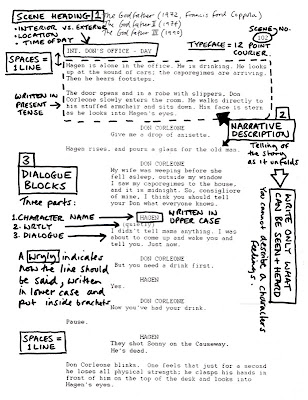 SCENE HEADING 1
The Godfather (1972, Francis Ford Coppola)
The Godfather II (1974)
The Godfather III (1990)
• INTERIOR VS. EXTERIOR
• LOCATION
• TIME OF DAY
SCENE NO.
102
TYPEFACE = 12 POINT
COURIER
INT. DON'S OFFICE - DAY
SPACES =
1 LINE
Hagen is alone in the office. He is drinking. He looks
up at the sound of cars; the caporegimes are arriving.
Then he hears footsteps.
WRITTEN IN
PRESENT
TENSE
The door opens and in a robe with slippers, Don
Corleone slowly enters the room. He walks directly to
his stuffed armchair and sits down. His face is stern
as he looks into Hagen's eyes.
2
NARRATIVE
DESCRIPTION
Telling of
the story
as it unfolds
DON CORLEONE
Give me a drop of anisette.
Hagen rises, and pours a glass for the old man.
DON CORLEONE
My wife was weeping before she
fell asleep, outside my window
I saw my caporegimes to the house,
and it is midnight. So, consigliore
of mine, I think you should tell
your Don what everyone knows.
3
DIALOGUE
BLOCKS
Three parts:
1. CHARACTER NAME
2. WRYLY
3. DIALOGUE
HAGEN
WRITTEN IN
UPPER CASE
(quietly)
I didn't tell mama anything. I was
about to come up and wake you and
tell you. Just now.
WRITE ONLY WHAT
CAN BE SEEN + HEARD
You cannot describe a characters
feelings.
A (wryly) indicates
how the line should
be said, written
in lower case and
put inside brackets
DON CORLEONE
But you needed a drink first.
HAGEN
Yes.
DON CORLEONE
Now you've had your drink.
Pause.
SPACES =
1 LINE
HAGEN
They shot Sonny on the Causeway.
He's dead.
Don Corleone blinks. One feels that just for a second
he loses all physical strength; he clasps his hands in
front of him on the top of the desk and looks into
Hagen's eyes.